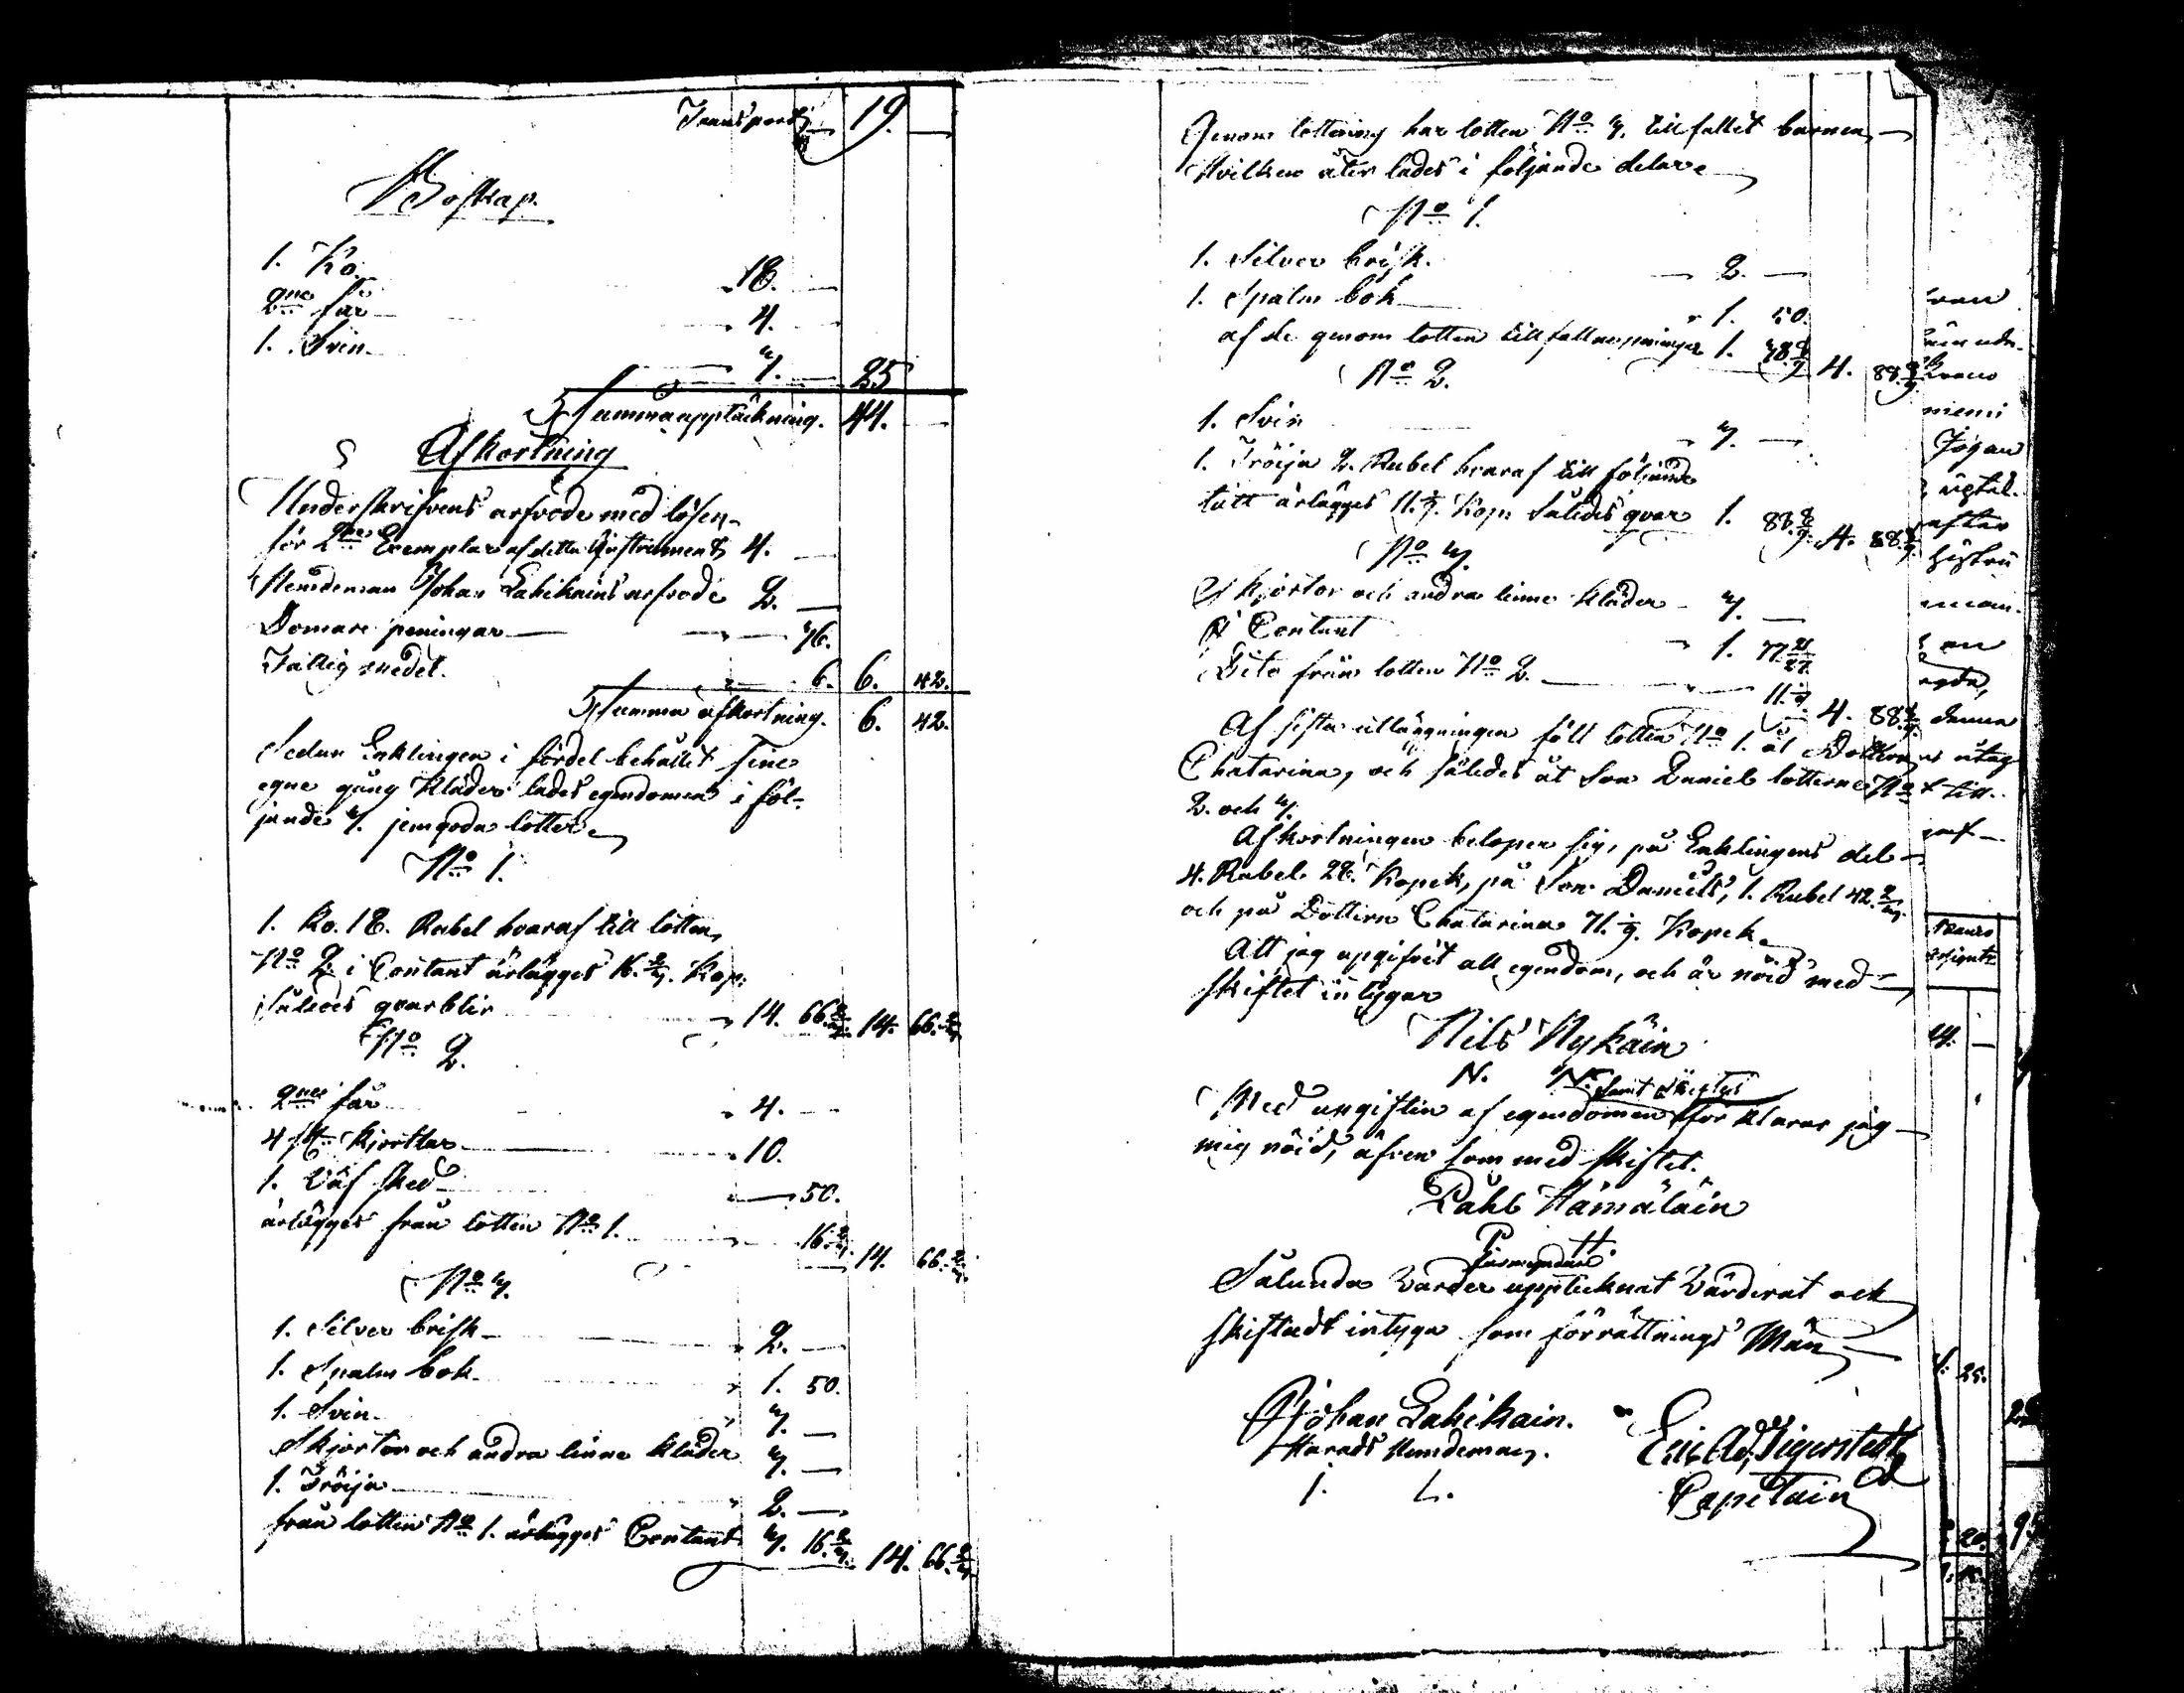 Transport 19. —
Boskap.
1. Ko 18. —
2ne får 4. —
1. Svin 3. — 25
Summa upptäckning. 44. —
Afkortning
Underskrifvens arfvode med lösen
för 2ne Exemplar af detta Instrument 4. —
Nemdeman Johan Lahikains arfvode 2. —
Domare peningar — 36.
Fattig medel. 6. 6. 42.
Summa afkortning. 6. 42.
Sedan Enklingen i fördel behållit sine
egne gång kläder lades egendomen i föl-
jande 3. jemgoda lotter
No 1.
1. Ko. 18. Rubel hvaraf till lotten
No 2. i Contant ärlägges 16.2/3. Kop:
Således qvarblir 14. 66.2/3. 14. 66.2/3
No 2.
2ne får 4. —
4 st. kjorttlar 10.
1. Väf sked — 50.
ärlägges från lotten No 1. 16.2/3. 14. 66.2/3.
No 3.
1. Silver brisk 2. —
1. Spalm bok 1. 50.
1. Svin 3. —
Skjortor och andra linne kläder 3. —
1. Tröija 2. —
från lotten No 1. ärlägges Contant 3. 16.2/3. 14. 66.2/3
Genom lottning har lotten No 3. till fallit barnen
Hvilken åter lades i följande delar
No 1.
1. Silver brisk. 2. —
1. Spalm bok 1. 50.
af de genom lotten till fallne peningar 1. 38.8/9 4. 88.8/9.
No 2.
1. Svin 3. —
1. Tröija 2. Rubel hvaraf till följande
lått ärlägges 11.1/9. Kop: Således qvar 1. 88.8/9. 4. 88.8/9.
No 3.
Skjortor och andra linne kläder 3. —
Contant 1. 77.21/27.
Dito från lotten No 2. 11.1/9. 4. 88.8/9
Af sista utläggningen föll lotten No 1. åt Dottren
Chatarina, och således åt Son Daniel lotterne No
2. och 3.
Afkortningen beloper sig, på Enklingens del
4. Rubel 28. Kopek, på Son Daniels, 1. Rubel 42.2/3.
och på Dottren Chatarina 71.1/9. Kopek
Att jag upgifvit all egendom, och är nöid med
skiftet intygar
Nils Nykäin
N. N.
samt skiftes
Med upgiften af egendomen för klarar jag
mig nöid, äfven som med skiftet.
Påhl Hämäläin
P H.
Förmyndare
Sålunda varder upptecknat Värderat och
skiftadt intyga som förrättnings Män
Johan Lahikain.
Harads Nemdeman.
I. L.
Eric Ad. Tigerstedt
Capitain